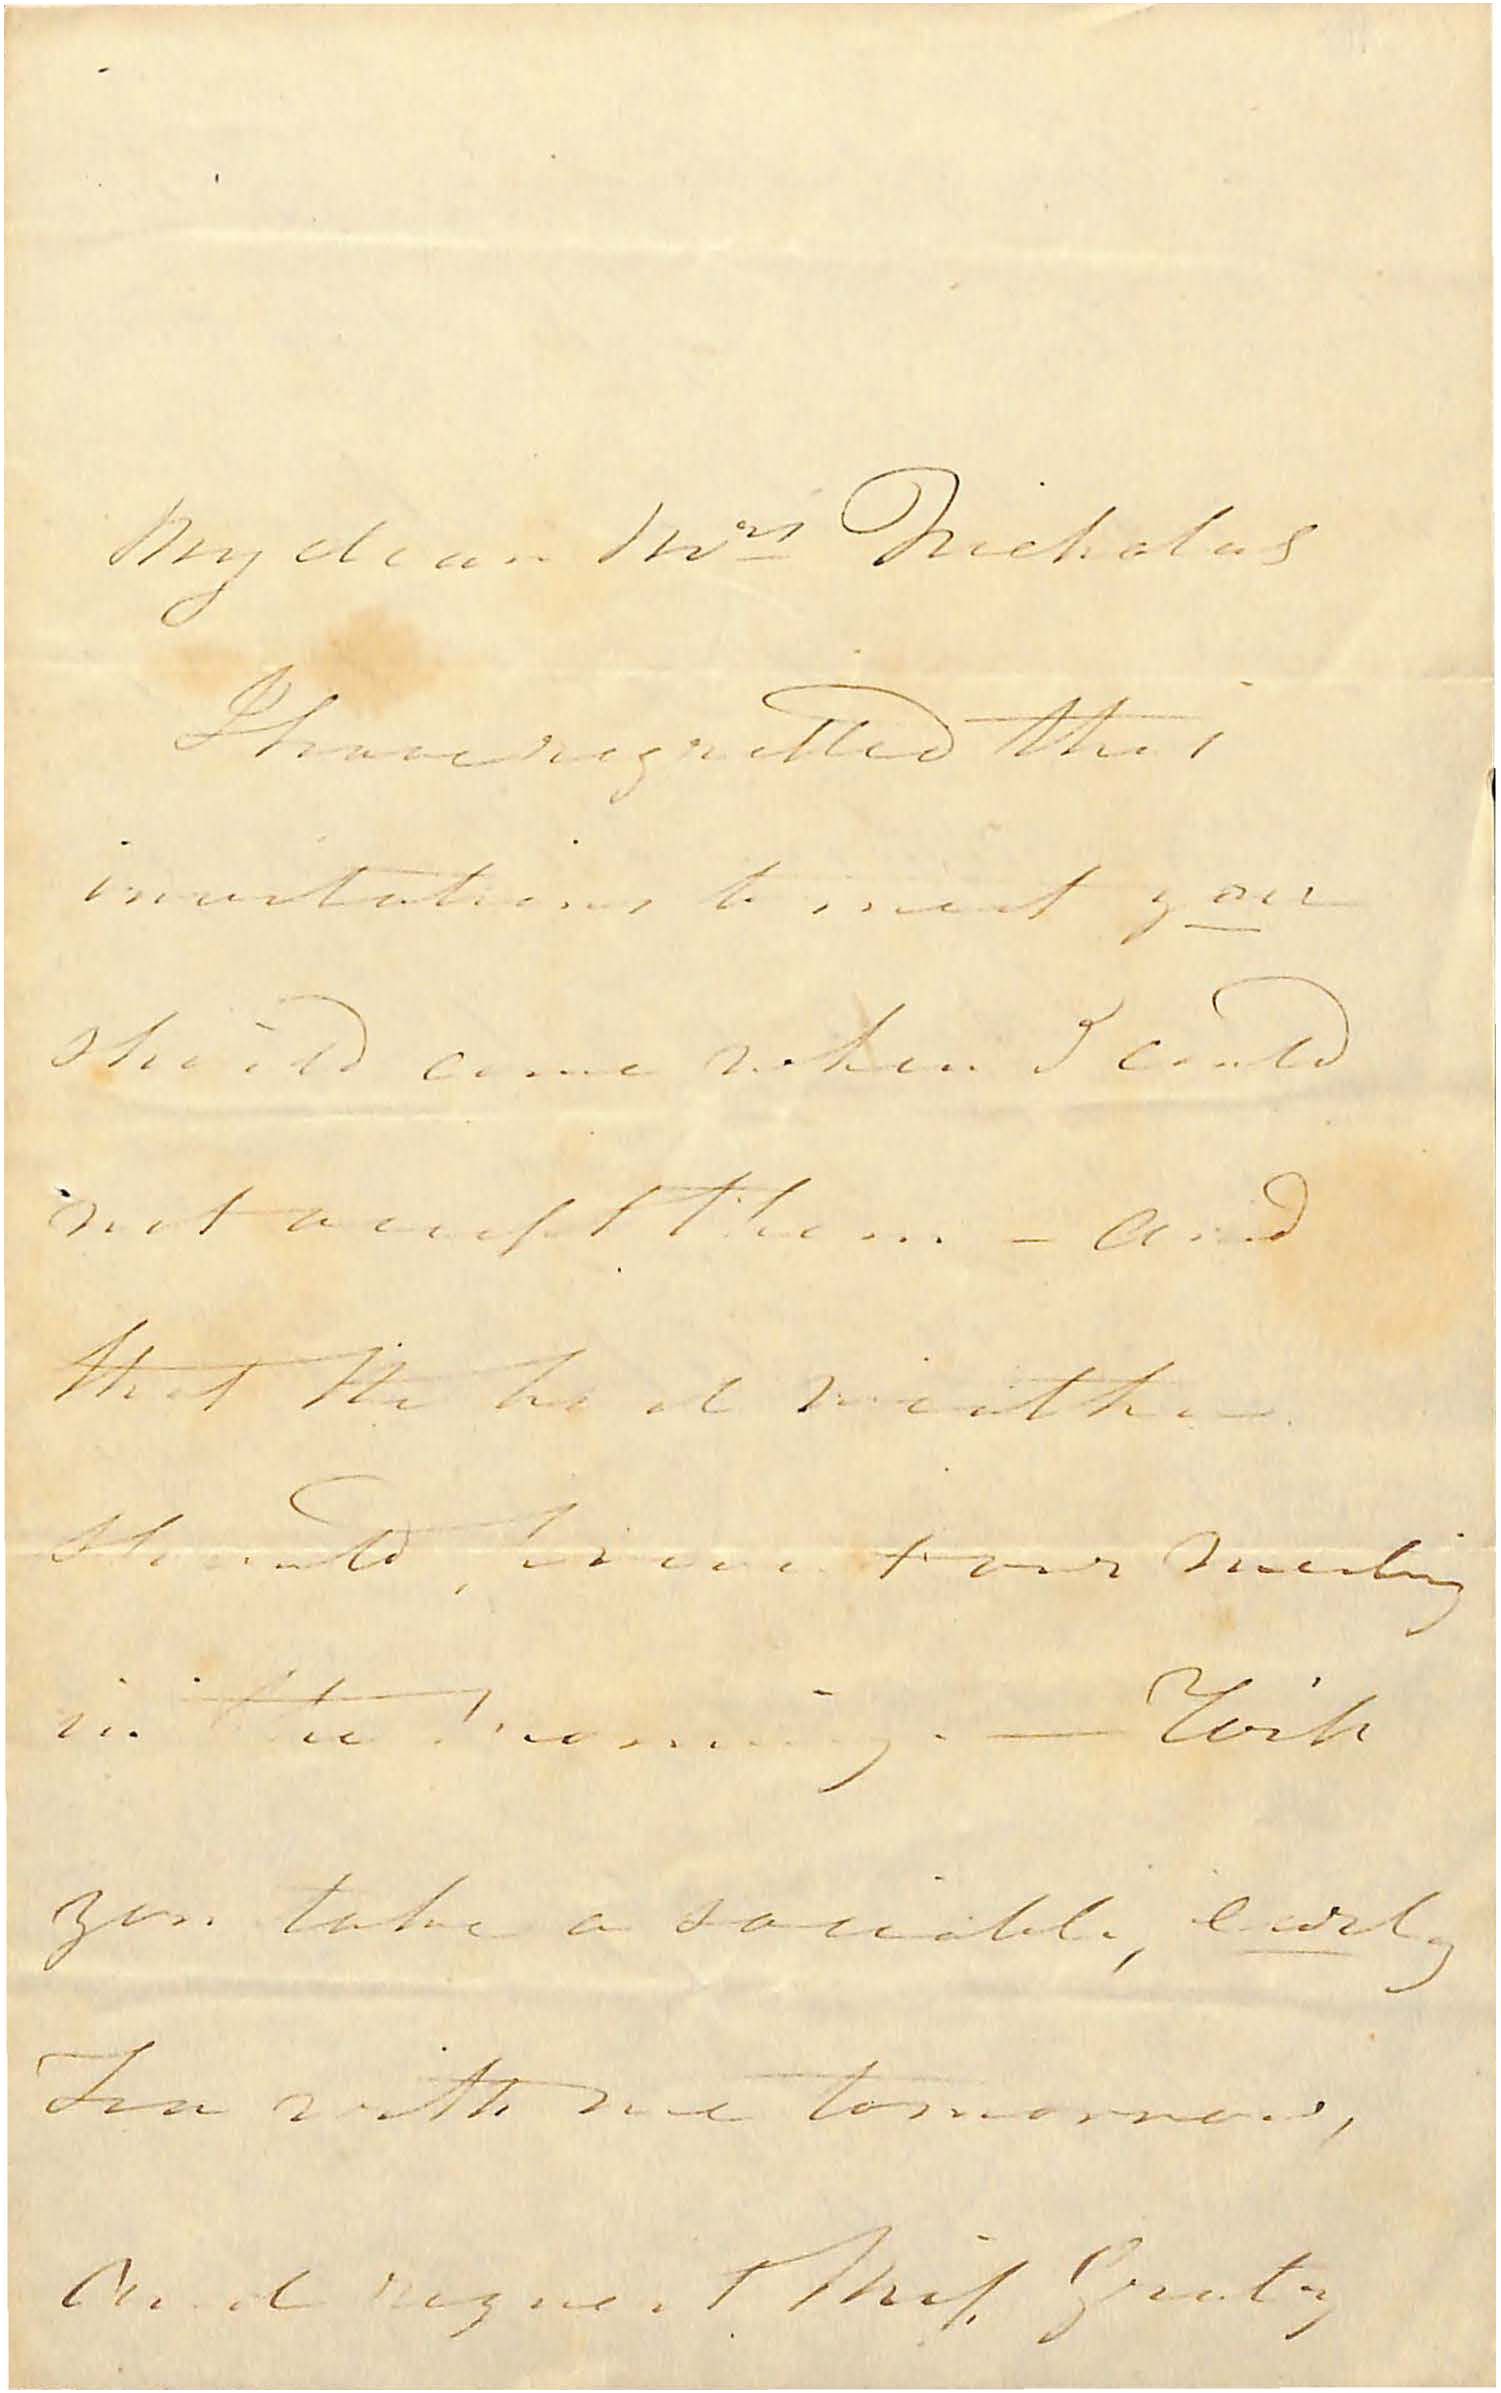 My dear Mrs Nicholas
I have regretted the
invitations to meet you
should come when I could
not accept them - and
that the bad weather
should prevent our meeting
in the morning. — Will
you take a sociable, early
Tea with me tomorrow,
And request Miss Gratz